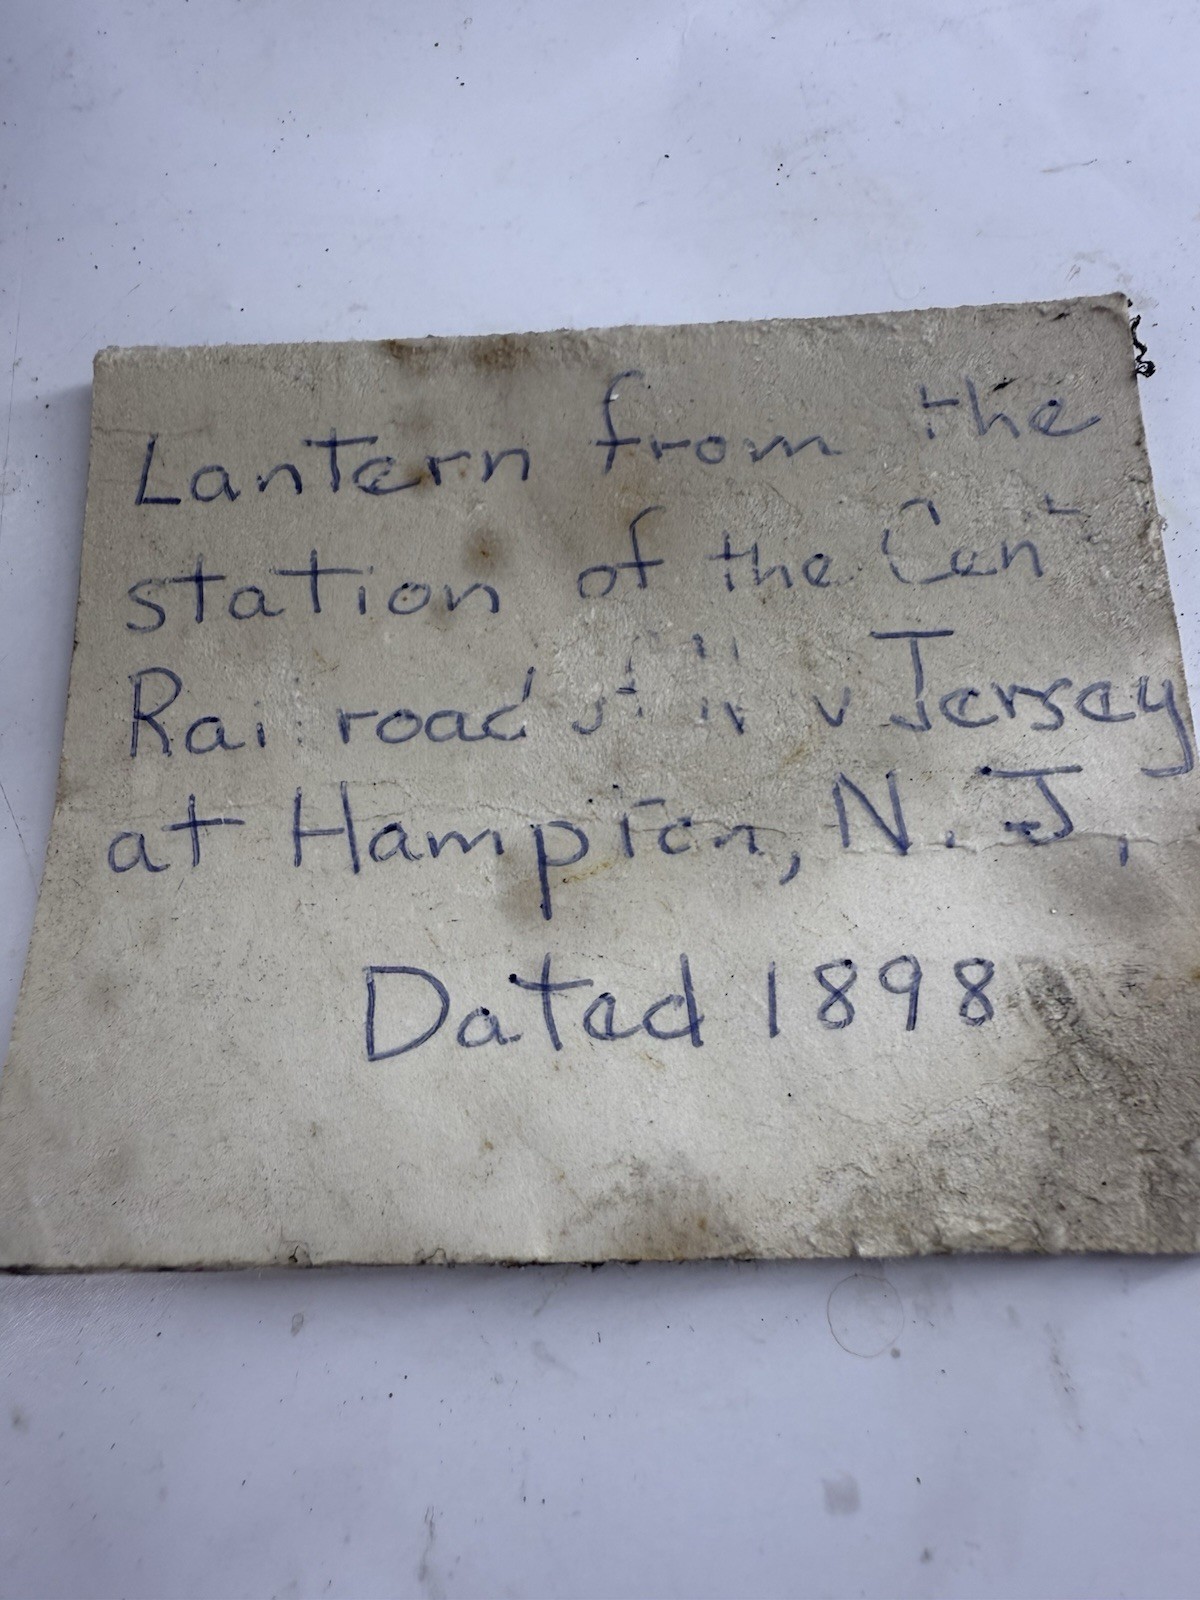 Lantern from the
station of the Cent
Railroad of Jersey
at Hampton, N. J.
Dated 1898